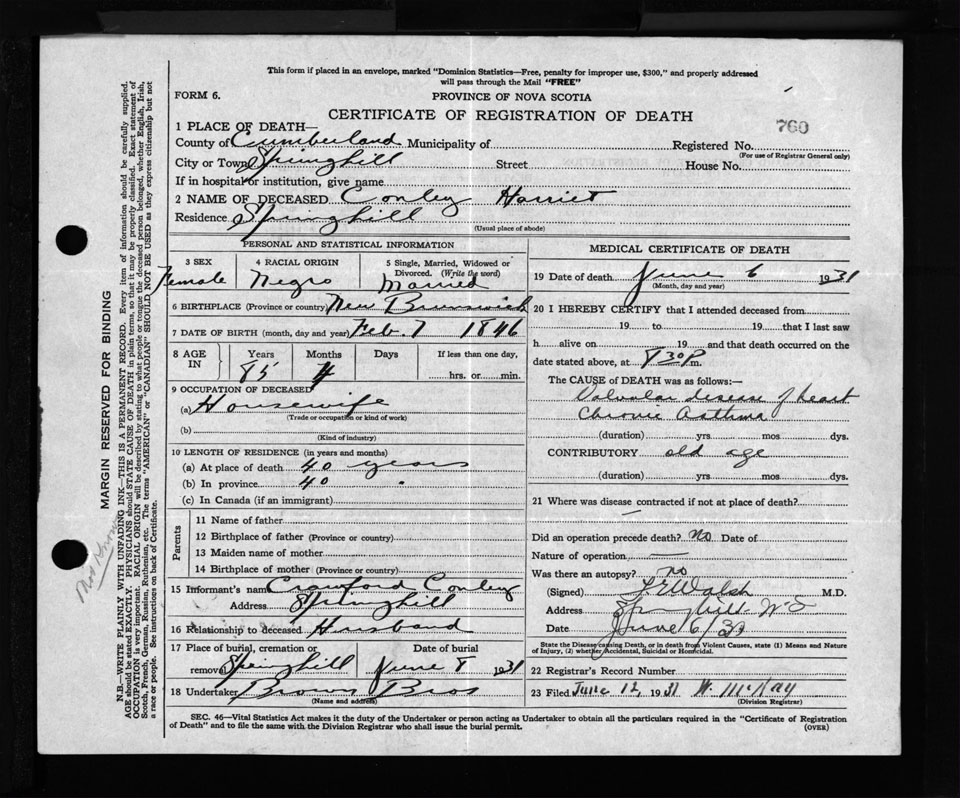 This form if placed in an envelope, marked "Dominion Statistics—Free, penalty for improper use, $300," and properly addressed
will pass through the Mail "FREE"
FORM 6.
PROVINCE OF NOVA SCOTIA
CERTIFICATE OF REGISTRATION OF DEATH
760
1 PLACE OF DEATH—
County of Cumberland Municipality of
Registered No.
(For use of Registrar General only)
City or Town Springhill Street House No.
If in hospital or institution, give name
2 NAME OF DECEASED Conley Harriet
Residence Springhill
(Usual place of abode)
PERSONAL AND STATISTICAL INFORMATION
3 SEX 4 RACIAL ORIGIN 5 Single, Married, Widowed or
Divorced. (Write the word)
Female Negro Married
6 BIRTHPLACE (Province or country) New Brunswick
7 DATE OF BIRTH (month, day and year) Feb. 7 1846
8 AGE IN Years Months Days If less than one day,
85 4 hrs. or min.
9 OCCUPATION OF DECEASED
(a) Housewife
(Trade or occupation or kind of work)
(b)
(Kind of industry)
10 LENGTH OF RESIDENCE (in years and months)
(a) At place of death 40 years
(b) In province 40 "
(c) In Canada (if an immigrant)
Parents
11 Name of father
12 Birthplace of father (Province or country)
13 Maiden name of mother
14 Birthplace of mother (Province or country)
15 Informant's name Crawford Conley
Address Springhill
16 Relationship to deceased Husband
17 Place of burial, cremation or Date of burial
removal Springhill June 8 1931
18 Undertaker Brown Bros
(Name and address)
MEDICAL CERTIFICATE OF DEATH
19 Date of death June 6 1931
(Month, day and year)
20 I HEREBY CERTIFY that I attended deceased from
19 to 19 that I last saw
h alive on 19 and that death occurred on the
date stated above, at 8 30 P m.
The CAUSE of DEATH was as follows:—
Valvular disease of heart
Chronic Asthma
(duration) yrs. mos. dys.
CONTRIBUTORY old age
(duration) yrs. mos. dys.
21 Where was disease contracted if not at place of death?
Did an operation precede death? no Date of
Nature of operation —
Was there an autopsy? no
(Signed) Walsh M.D.
Address Springhill N.S
Date June 6/31
State the Disease causing Death, or in death from Violent Causes, state (1) Means and Nature
of Injury, (2) whether Accidental, Suicidal or Homicidal.
22 Registrar's Record Number
23 Filed June 12, 1931 W. McKay
(Division Registrar)
SEC. 46—Vital Statistics Act makes it the duty of the Undertaker or person acting as Undertaker to obtain all the particulars required in the "Certificate of Registration
of Death" and to file the same with the Division Registrar who shall issue the burial permit.
(OVER)
MARGIN RESERVED FOR BINDING
N.B.—WRITE PLAINLY WITH UNFADING INK—THIS IS A PERMANENT RECORD. Every item of information should be carefully supplied.
AGE should be stated EXACTLY. PHYSICIANS should STATE CAUSE OF DEATH in plain terms, so that it may be properly classified. Exact statement of
OCCUPATION is very important. RACIAL ORIGIN will be described by stating to what people or tongue the deceased person belonged, whether English, Irish,
Scotch, French, German, Russian, Ruthenian, etc. The terms "AMERICAN" or "CANADIAN" SHOULD NOT BE USED as they express citizenship but not
a race or people. See instructions on back of Certificate.